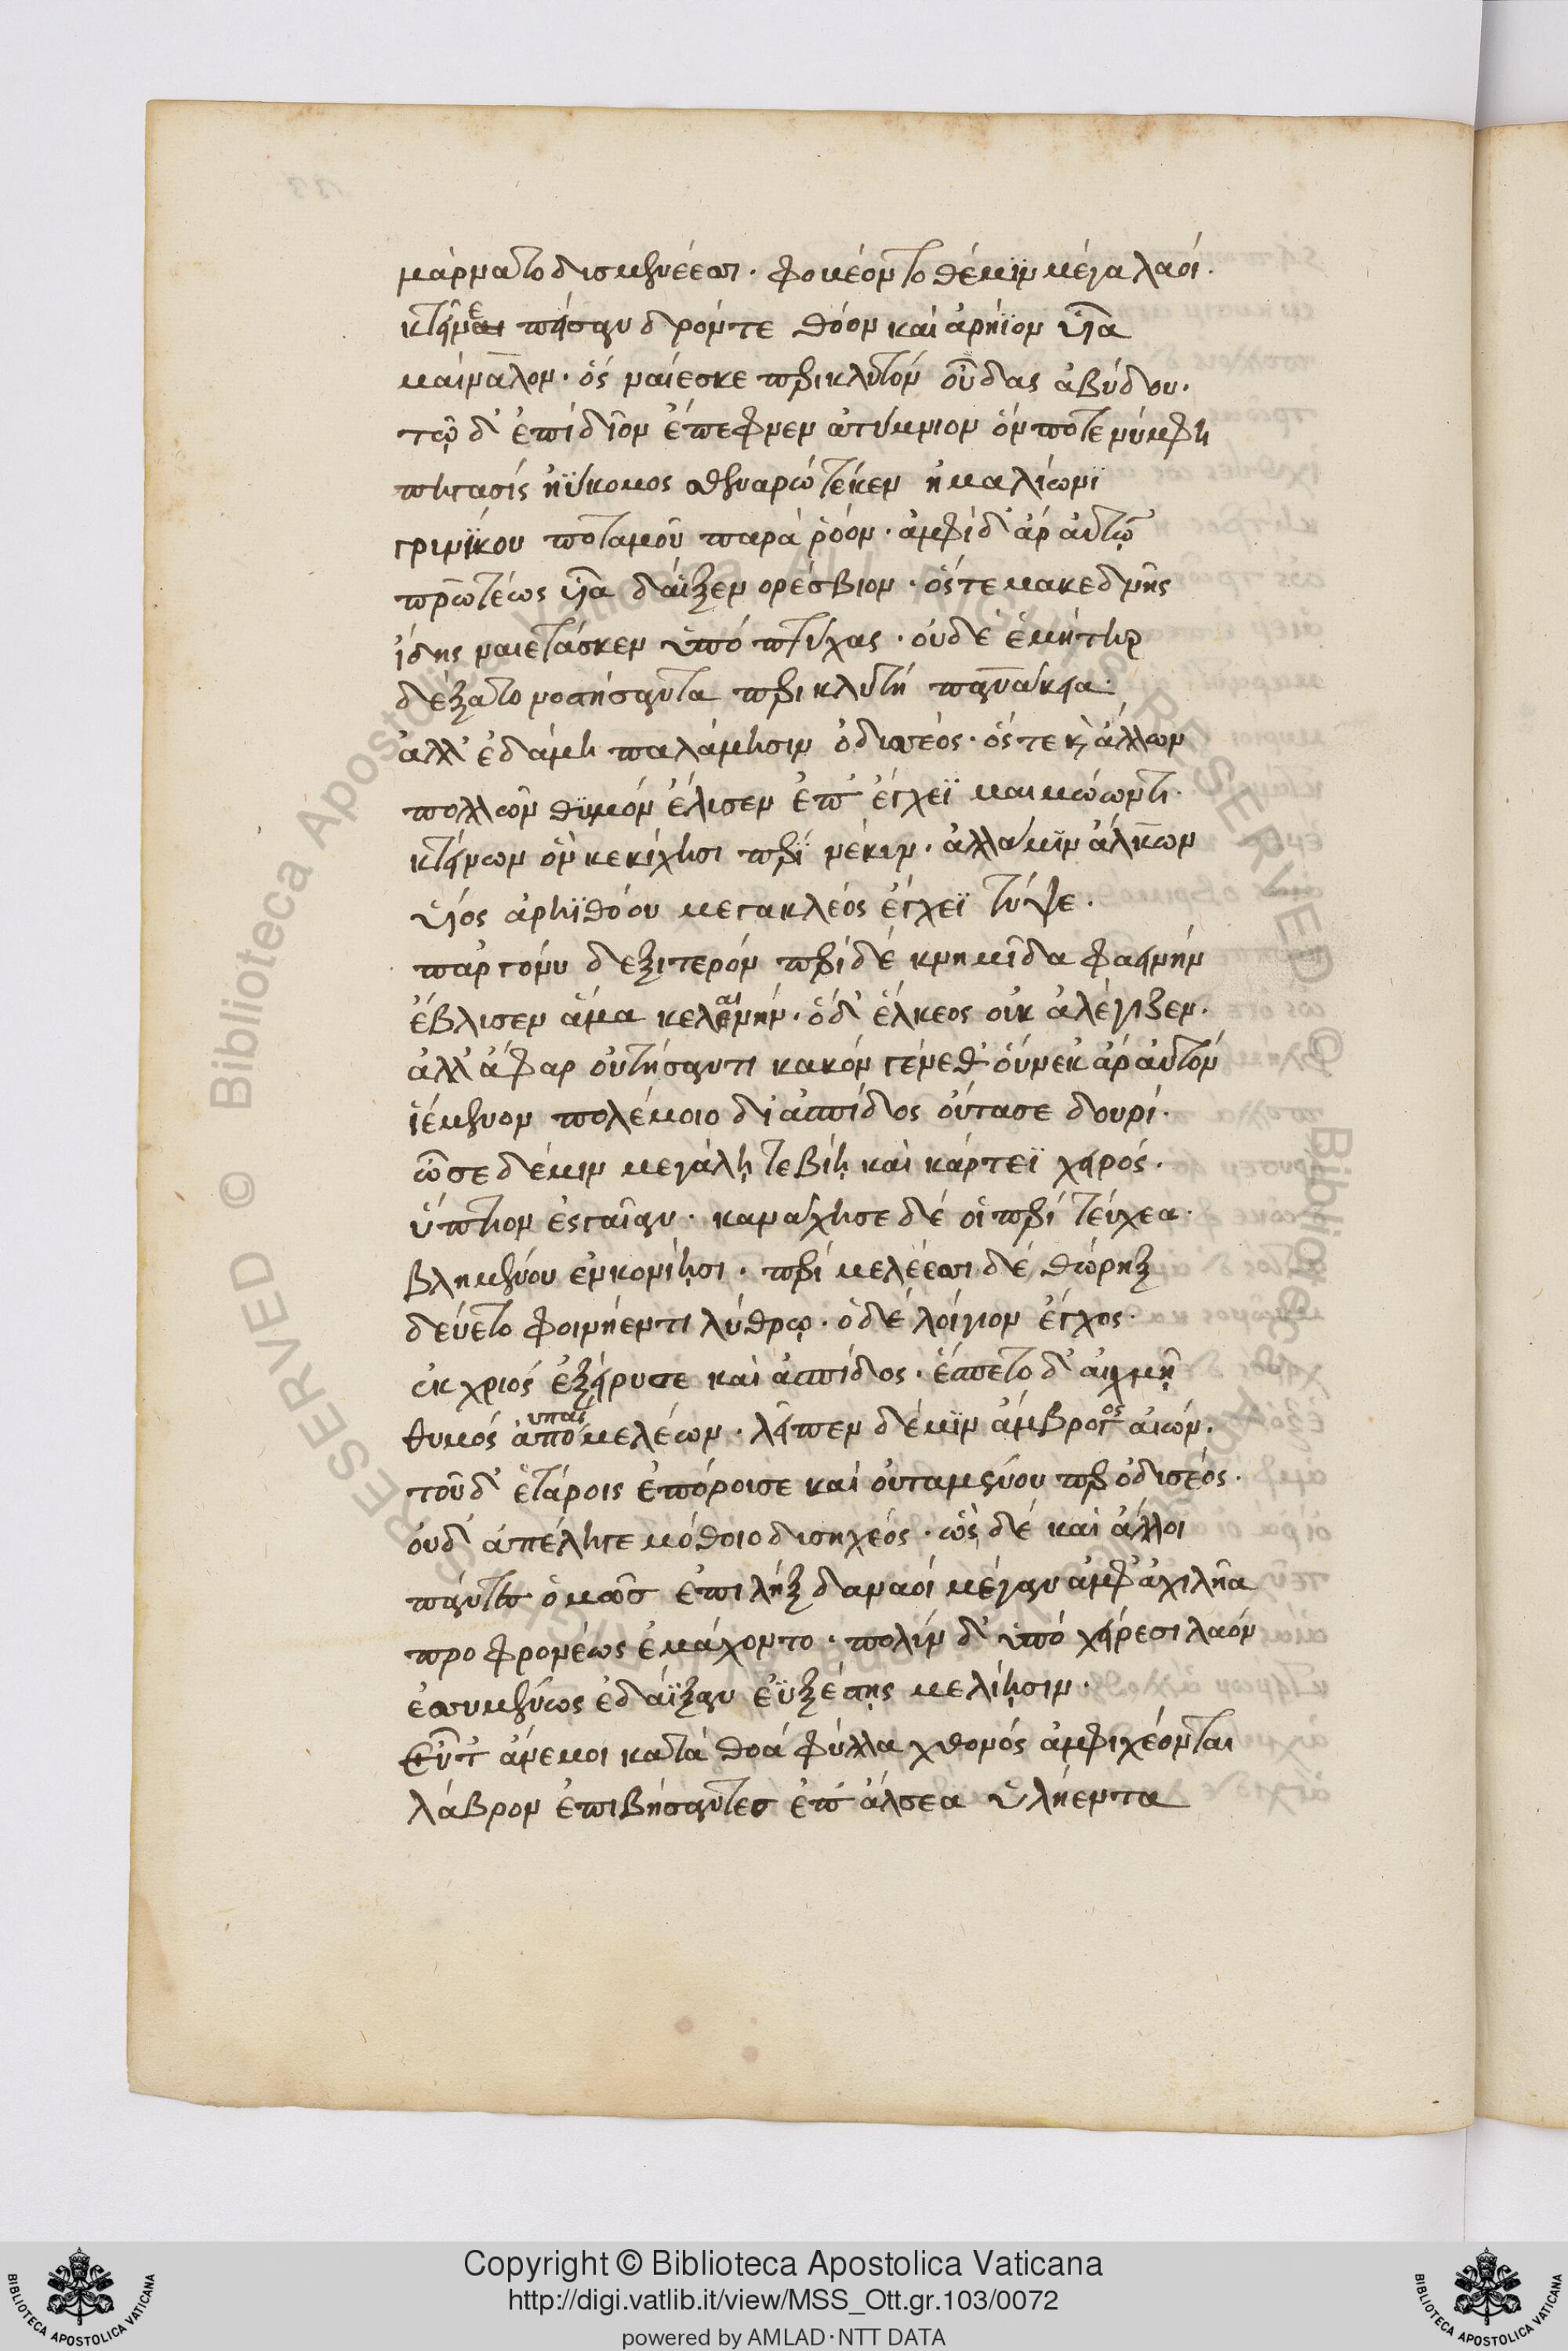 μάρνατο δυσμενέεσσι. φοβέοντο δέ μϊν μέγα λαοί.
κτεῖνε πείσανδρόν τε θόον καὶ ἀρήϊον υἷα
μαίναλον. ὅς ναίεσκε περικλυτὸν οὖδας ἀβύδου.
τῷ δ' ἐπὶ δῖον ἔπεφνεν ἀτύμνιον ὅν ποτε νύμφη
πηγασίς ἠΰκομος σθεναρῶ τέκεν ἠμαθίωνϊ
γρινΐκου ποταμοῦ παρὰ ῥόον. ἀμφὶ δ' ἄρ αὐτῷ
πρωτέως υἷα δάϊξεν ὀρέσβιον. ὅς τε μακεδνῆς
ἴδης ναιετάσκεν ὑπὸ πτύχας. οὐδέ ἑ μήτηρ
δέξατο νοστήσαντα περικλυτὴ πανάκεια.
ἀλλ' ἐδάμη παλάμησιν ὀδυσσέος. ὅς τε κ' ἄλλων
πολλῶν θυμὸν ἔλυσεν ἐπ' ἔγχεϊ μαιμώωντι.
κτείνων ὅν κε κίχησι περὶ νέκυν. ἀλλά μϊν ἄλκων
υἱὸς ἀρηϊθόου μεγακλέος ἔγχεϊ τύψε.
παρ γόνυ δεξιτερόν περὶ δέ κνημῖδα φαεινὴν
ἔβλυσεν ἅμα κελαινήν. ὁ δ' ἕλκεος οὐκ ἀλέγιζεν.
ἀλλ' ἄφαρ οὐτήσαντι κακὸν γένεθ' οὕνεκ' ἄρ αὐτὸν
ἱέμενον πολέμοιο δι' ἀσπίδος οὔτασε δουρί.
ὦσε δέ μιν μεγάλῃ τε βίῃ καὶ κάρτεϊ χειρός.
ὕπτιον ἐς γαῖαν. καναχησε δέ οἱ περὶ τεύχεα.
βλημένου ἐν κονίῃσι. περὶ μελέεσσι δέ θώρηξ
δεύετο φοινήεντι λύθρῳ. ὁ δέ λοίγιον ἔγχος.
ἐκ χροὸς ἐξείρυσε καὶ ἀσπίδος. ἕσπετο δ' αἰχμῇ
θυμός ἀπὸ ὑπαὶ μελέων. λείπεν δέ μϊν ἄμβροτος αἰών.
τοῦ δ' ἑτάροις ἐπόρουσε καὶ οὐταμένου περ ὀδυσέος.
οὐδ' ἀπέληγε μόθοιο δυσηχέος. ὣς δέ καὶ ἄλλοι
πάντες ὁμῶς ἐπιλὴξ δαναοὶ μέγαν ἀμφ' ἀχιλῆα
προφρονέως ἐμάχοντο. πολὺν δ' ὑπὸ χείρεσι λαὸν
ἐσσυμένως ἐδάϊξαν ἐϋξέστῃς μελίῃσιν.
εὖτ' ἄνεμοι κατὰ θοὰ φύλλα χθονὸς ἀμφιχέονται
λάβρον ἐπιβήσαντες ἐπ' ἄλσεα ὑλήεντα
Copyright © Biblioteca Apostolica Vaticana
http://digi.vatlib.it/view/MSS_Ott.gr.103/0072
powered by AMLAD·NTT DATA